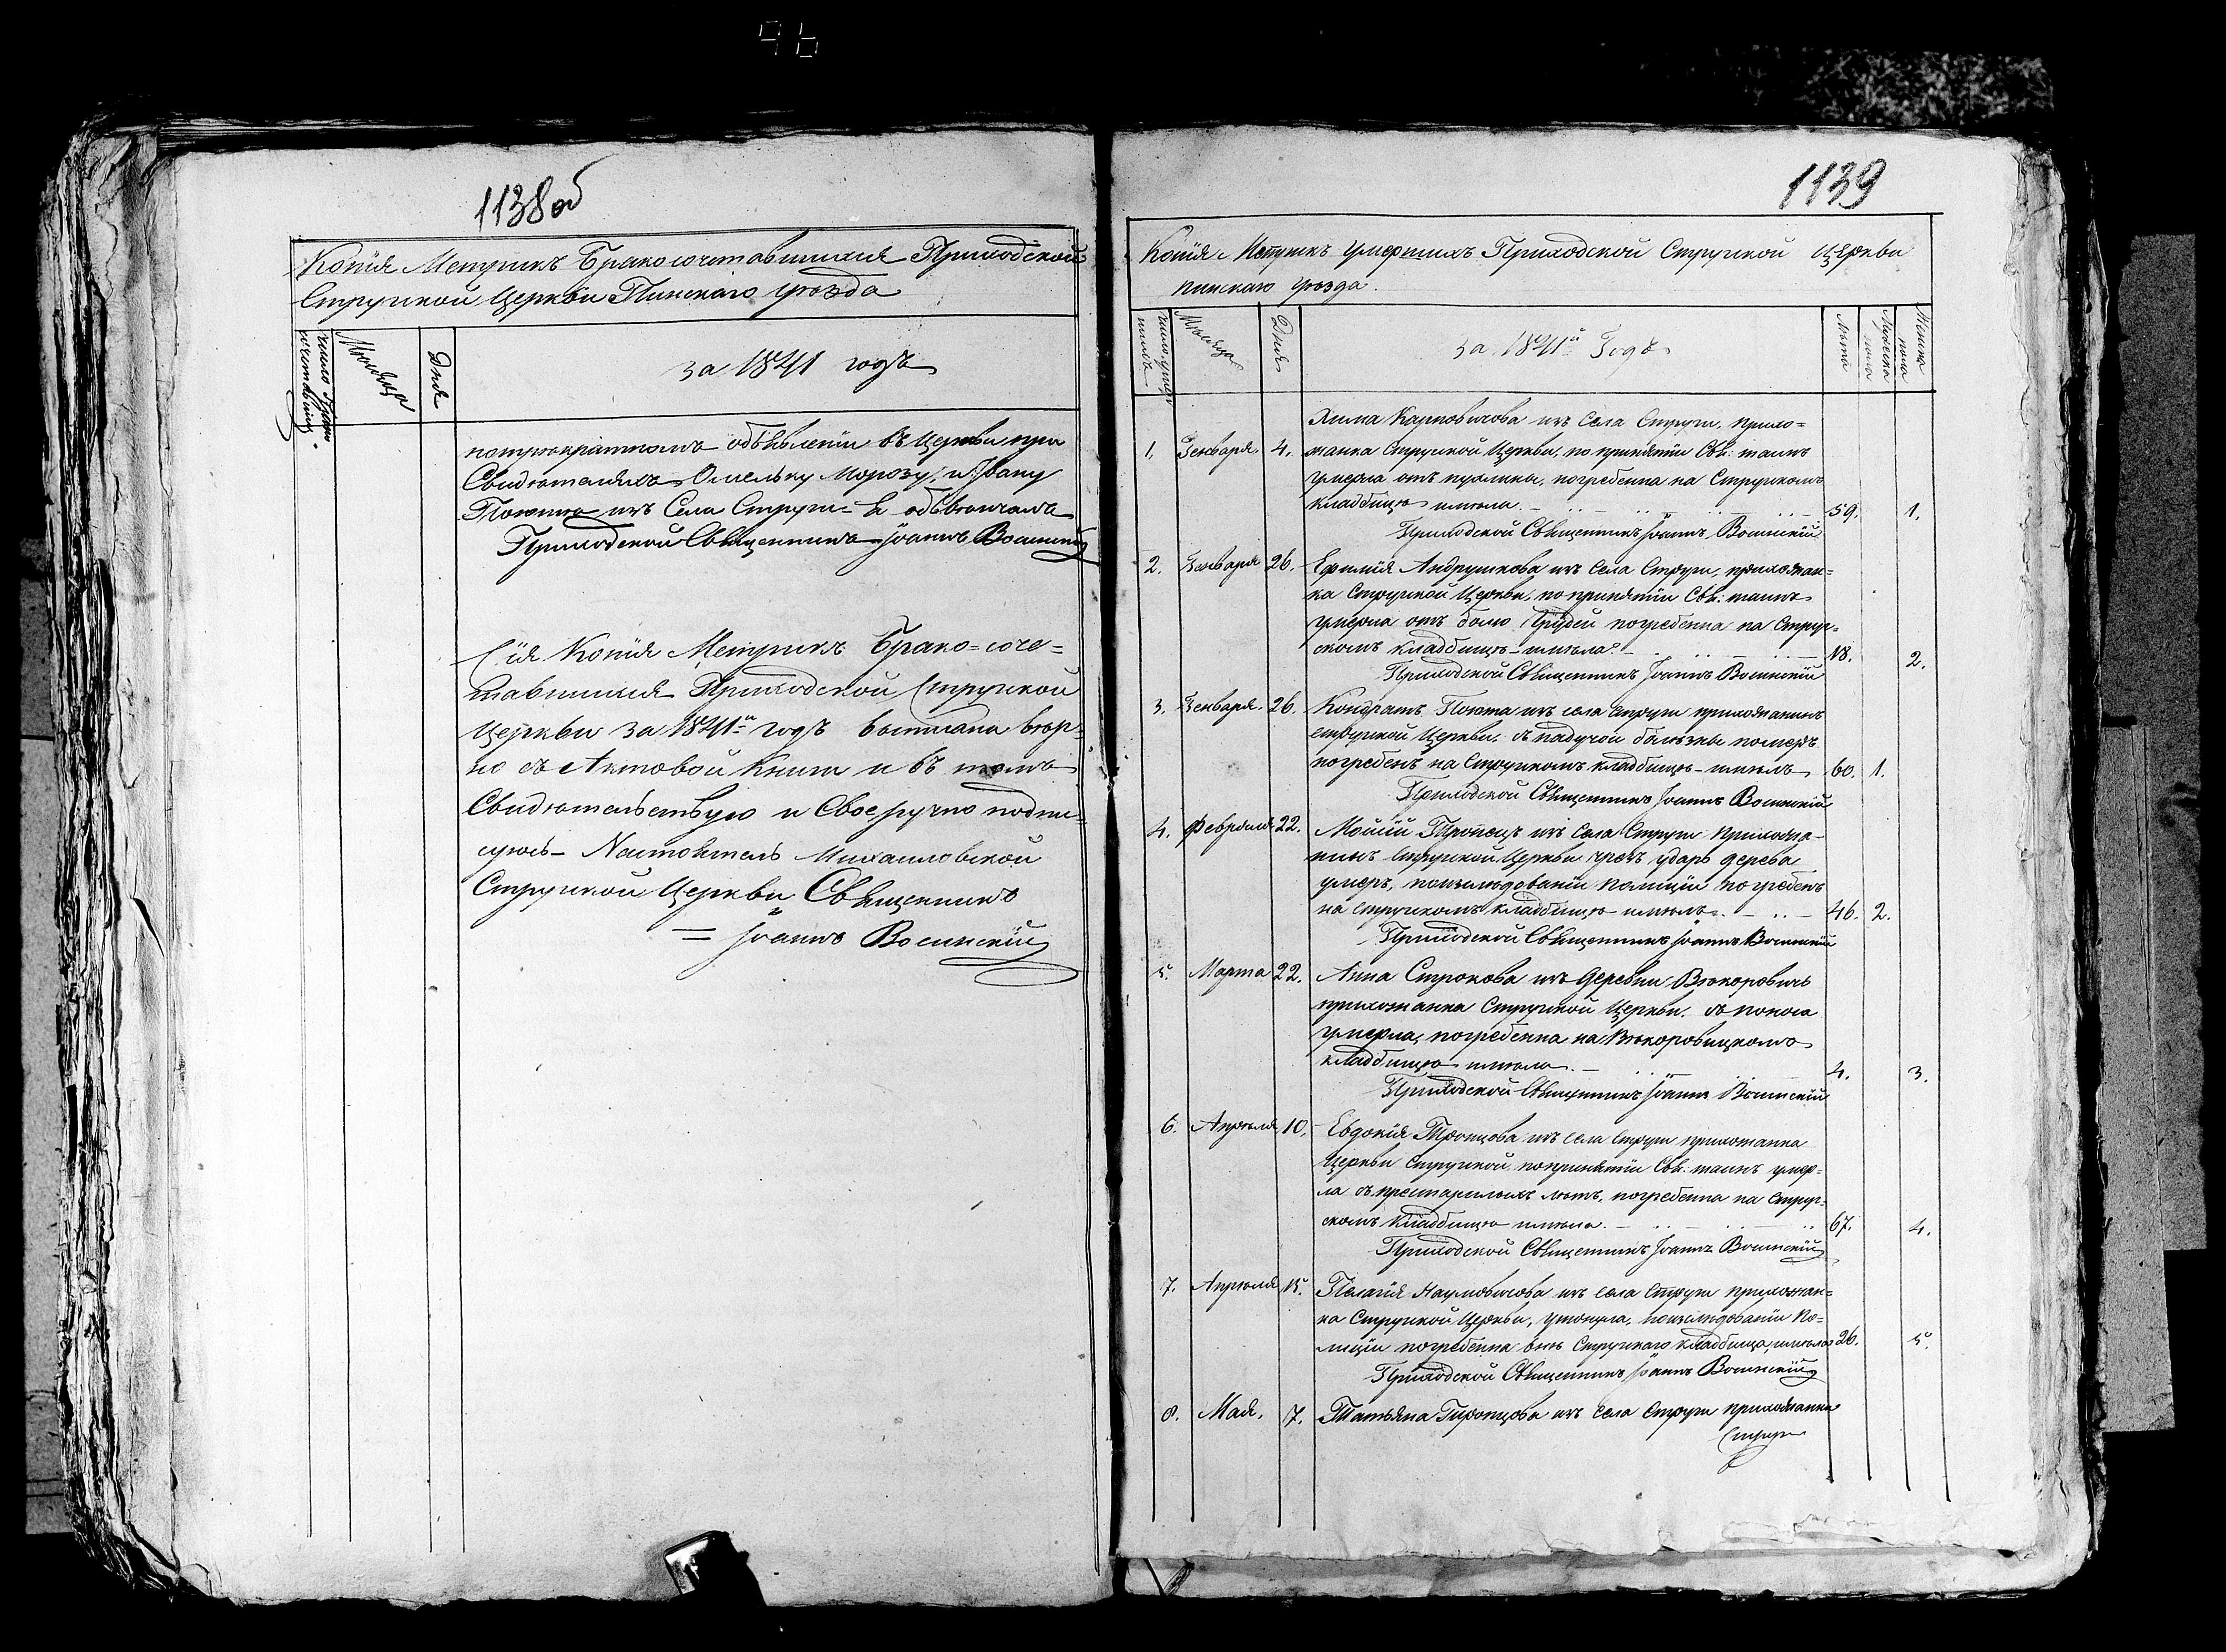 1138об
Копія Метрикъ Бракосочетавшихся Приходской
Стружской Церкви Пинскаго уѣзда
число брако
сочетавших.
Мѣсяца
Дня
за 1841 годъ
потроекратномъ объявленіи въ Церкви при
Свидѣтеляхъ Омельку Морозу, и Ивану
изъ Села Струги
Приходской Священникъ Іоаннъ
Сія Копія Метрикъ Брако=соче=
тавшихся Приходской Стружской
Церкви за 1841й годъ выписана вѣр=
но съ Актовой Книги и въ томъ
Свидѣтельствую и Своеручно подпи=
суюсь Настоятель Михаиловской
Стружской Церкви Священникъ
= Іоаннъ
1139
Копія Метрикъ Умершихъ Приходской Стружской Церкви
Пинскаго уѣзда.
число умер
шихъ
Мѣсяца
Дня
за 1841й Годъ
Лѣта
Мужеска
пола
Женска
пола
Карповичова изъ Села Струги, прихо=
1. Генваря. 4. жанка Стружской Церкви, по принятіи Свя: таинъ
умерла отъ пухлины, погребенна на Стружскомъ
кладбищѣ 59. 1.
Приходской Священникъ Іоаннъ
2. Генваря 26. Ефимія Андрушкова изъ Села Струги, прихожан=
ка Стружской Церкви, по принятіи Свя: таинъ
умерла отъ боли Грудей погребенна на Струж=
скомъ кладбищѣ 18. 2.
Приходской Священникъ Іоаннъ
3. Генваря. 26. Кондратъ изъ села Струги прихожанинъ
Стружской Церкви, съ падучой болѣзни померъ
погребенъ на Стружскомъ кладбищѣ 60. 1.
Приходской Священникъ Іоаннъ
4. Февраля 22. Мойсій изъ Села Струги прихожа=
нинъ Стружской Церкви чрезъ ударъ дерева
умеръ, поизслѣдованіи полиціи погребенъ
на Стружскомъ кладбищѣ 46. 2.
Приходской Священникъ Іоаннъ
5. Марта 22. Анна Строкова изъ Деревни Вѣкоровичъ
прихожанка Стружской Церкви, съ поноса
умерла, погребенна на Вѣкоровицкомъ
кладбищѣ 4. 3.
Приходской Священникъ Іоаннъ
6. Апрѣля 10. Евдокія изъ села Струги прихожанка
Церкви Стружской, по принятіи Свя: таинъ умер=
ла съ престарѣлыхъ лѣтъ, погребенна на Струж=
скомъ кладбищѣ 67. 4.
Приходской Священникъ Іоаннъ
7. Апрѣля 15. Пелагія Наумовичова изъ села Струги прихожан=
ка Стружской Церкви, утонула, поизслѣдованіи По=
лиціи погребенна внѣ Стружскаго кладбища, 26. 5.
Приходской Священникъ Іоаннъ
8. Мая. 7. Татьяна изъ Села Струги прихожанка